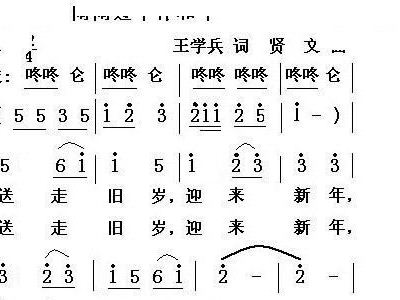 2/4 王学兵 词 贤 文 曲
: 咚咚 仑 | 咚咚 仑 | 咚咚 咚咚 | 咚咚 仑
5 5 3 5 | i 2 3 | 2 i i 2 5 | i - )
5 6 i | i 5 | i 2 3 | 3 3
送 走 旧 岁,迎 来 新 年,
送 走 旧 岁,迎 来 新 年,
3 2 3 | i 5 6 i | 2 - | 2 -